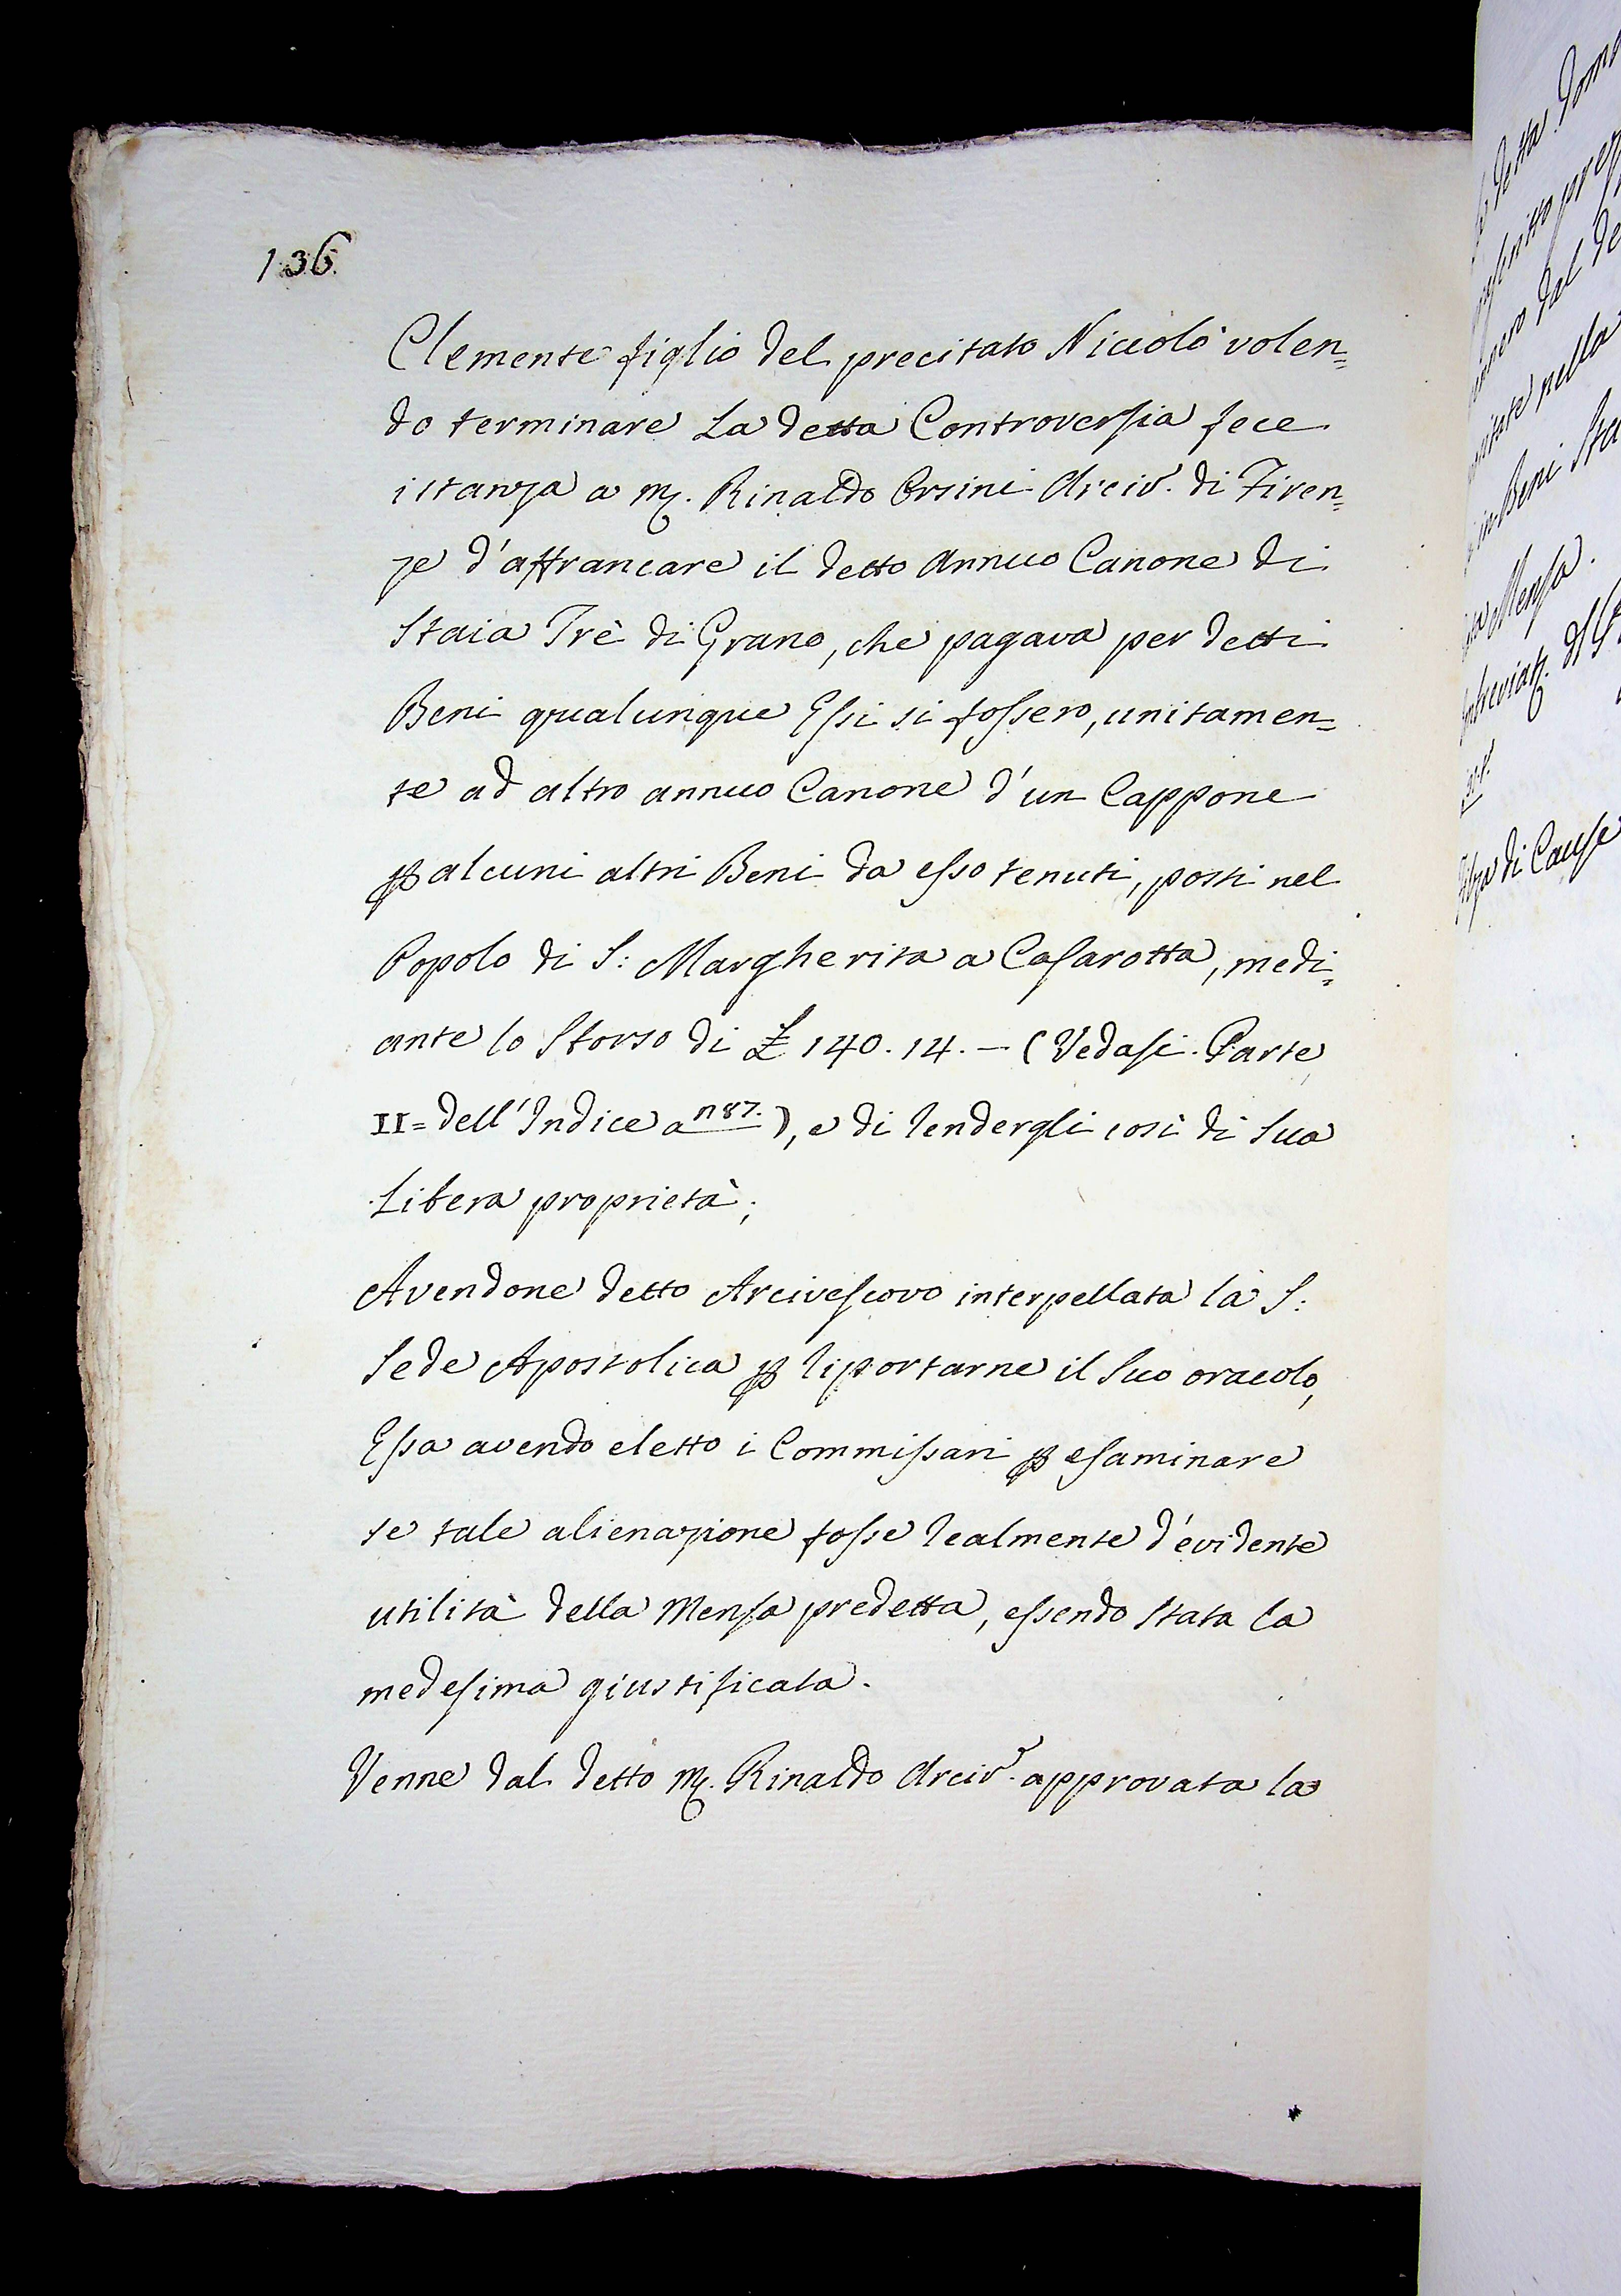 136.
Clemente figlio del precitato Niccolò volen=
do terminare La detta Controversia fece
istanza a M. Rinaldo Orsini Arciv.º di Firen=
ze d'affrancare il detto Annuo Canone di
Staia Trè di Grano, che pagava per detti
Beni qualunque Essi si fossero, unitamen=
te ad altro annuo Canone d'un Cappone
p alcuni altri Beni da esso tenuti, posti nel
Popolo di S: Margherita a Casarotta, medi=
ante lo Storso di £ 140. 14. — (Vedasi Parte
II= dell'Indice a n 87.), e di rendergli così di Sua
Libera proprietà;
Avendone detto Arcivescovo interpellata la S:
Sede Apostolica p riportarne il Suo oracolo,
Essa avendo eletto i Commissari p esaminare
se tale alienazione fosse realmente d'evidente
utilità della Mensa predetta, essendo Stata la
medesima giustificata.
Venne dal detto M. Rinaldo Arciv.º approvata la
detta
nella
in Beni
Mensa.
di Cause